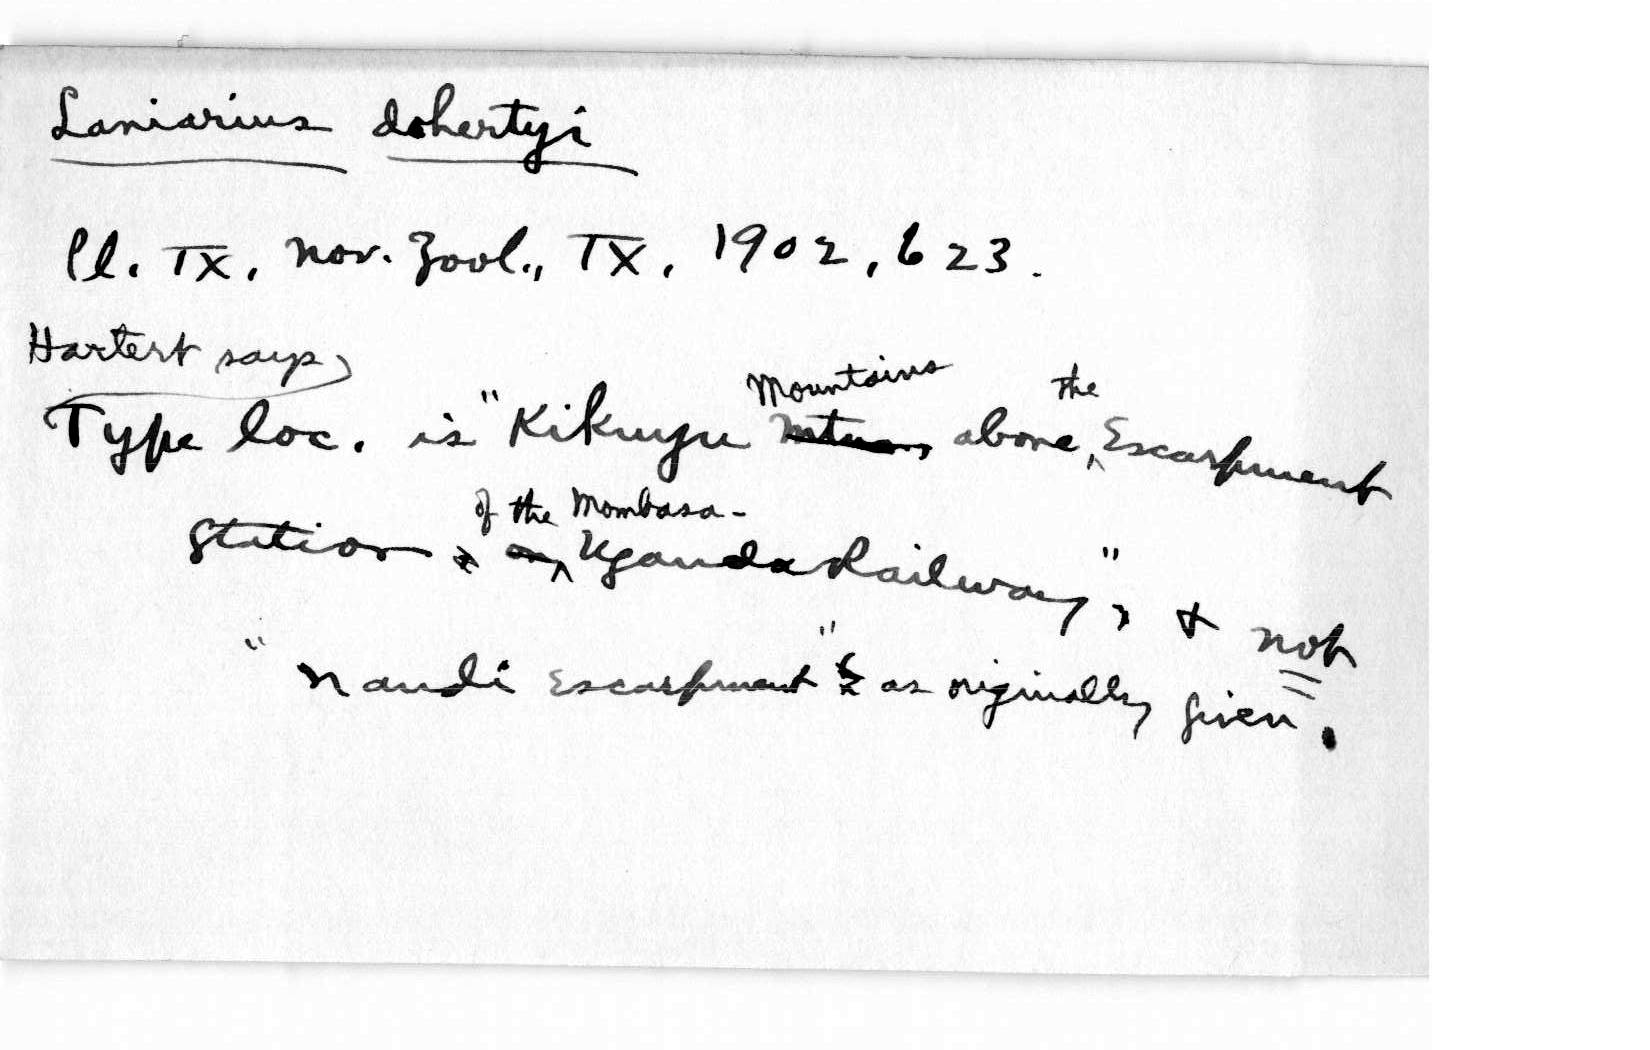 Laniarius dohertyi
Pl. IX, Nov. Zool., IX, 1902, 623.
Hartert says
Type loc. is "Kikuyu Mountains above the Escarpment
Station of the Mombasa-
Uganda Railway", & not
"Nandi Escarpment" as originally given.